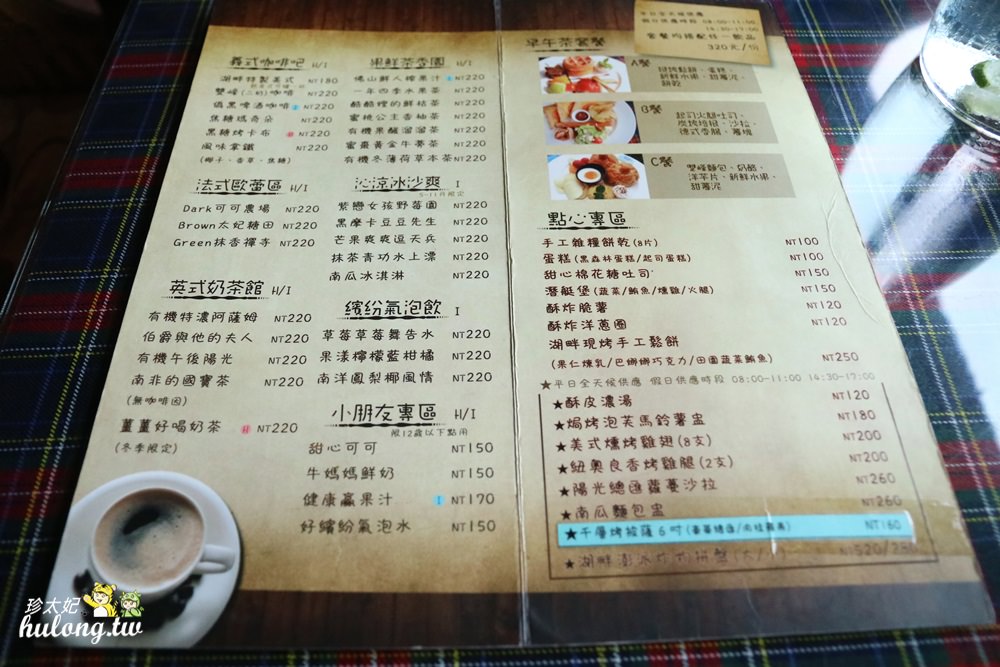 義式咖啡吧 H/I
湖畔特製美式 NT180
雙峰(二奶)咖啡 NT220
傷黑啤酒咖啡 I NT220
焦糖瑪奇朵 NT220
黑糖烤卡布 H NT220
風味拿鐵 NT220
(椰子、香草、焦糖)
法式歐蕾區 H/I
Dark可可農場 NT220
Brown太妃糖田 NT220
Green抹香禪寺 NT220
英式奶茶館 H/I
有機特濃阿薩姆 NT220
伯爵與他的夫人 NT220
有機午後陽光 NT220
南非的國寶茶 NT220
(無咖啡因)
薑薑好喝奶茶 H NT220
(冬季限定)
果鮮茶香園 H/I
佛山鮮人榨果汁 I NT220
一年四季水果茶 NT220
酷酷嫂的鮮桔茶 NT220
蜜桃公主香柚茶 NT220
有機果醋溜溜茶 NT220
蜜棗黃金牛蒡茶 NT220
有機冬薄荷草本茶 NT220
沁涼冰沙爽 I
5-11月限定
紫戀女孩野莓園 NT220
黑摩卡豆豆先生 NT220
芒果爽爽逗天兵 NT220
抹茶青功水上漂 NT220
南瓜冰淇淋 NT220
繽紛氣泡飲 I
草莓草莓舞告水 NT220
果漾檸檬藍柑橘 NT220
南洋鳳梨椰風情 NT220
小朋友專區 H/I
限12歲以下點用
甜心可可 NT150
牛媽媽鮮奶 NT150
健康贏果汁 I NT170
好繽紛氣泡水 NT150
平日全天候供應
假日供應時段 08:00-11:00
14:30-17:00
套餐均搭配任一飲品
320元/份
早午茶套餐
A餐
新鮮水果、甜薯泥、
餅乾
B餐
起司火腿吐司、
德式香腸、薯塊
C餐
雙峰麵包、奶酪、
洋芋片、新鮮水果、
甜薯泥
點心專區
手工雜糧餅乾(8片) NT100
蛋糕(黑森林蛋糕/起司蛋糕) NT100
甜心棉花糖吐司 NT150
潛艇堡(蔬菜/鮪魚/燻雞/火腿) NT150
酥炸脆薯 NT120
酥炸洋蔥圈 NT120
湖畔現烤手工鬆餅
(果仁煉乳/巴娜娜巧克力/田園蔬菜鮪魚) NT250
★平日全天候供應 假日供應時段 08:00-11:00 14:30-17:00
★酥皮濃湯 NT120
★焗烤泡芙馬鈴薯盅 NT180
★美式燻烤雞翅(8支) NT200
★紐奧良香烤雞腿(2支) NT200
★陽光總匯蘿蔓沙拉 NT260
★南瓜麵包盅 NT260
★千層烤披薩6吋 NT160
★湖畔澎派炸物拼盤
珍太妃
hulong.tw